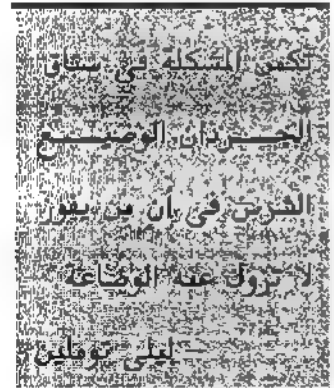 تكمن المشكلة في سباق
الجـــرذان الوضيـــع
الشرس في أن من يفوز
لا تزول عنه الوضاعة
ليلي توملين